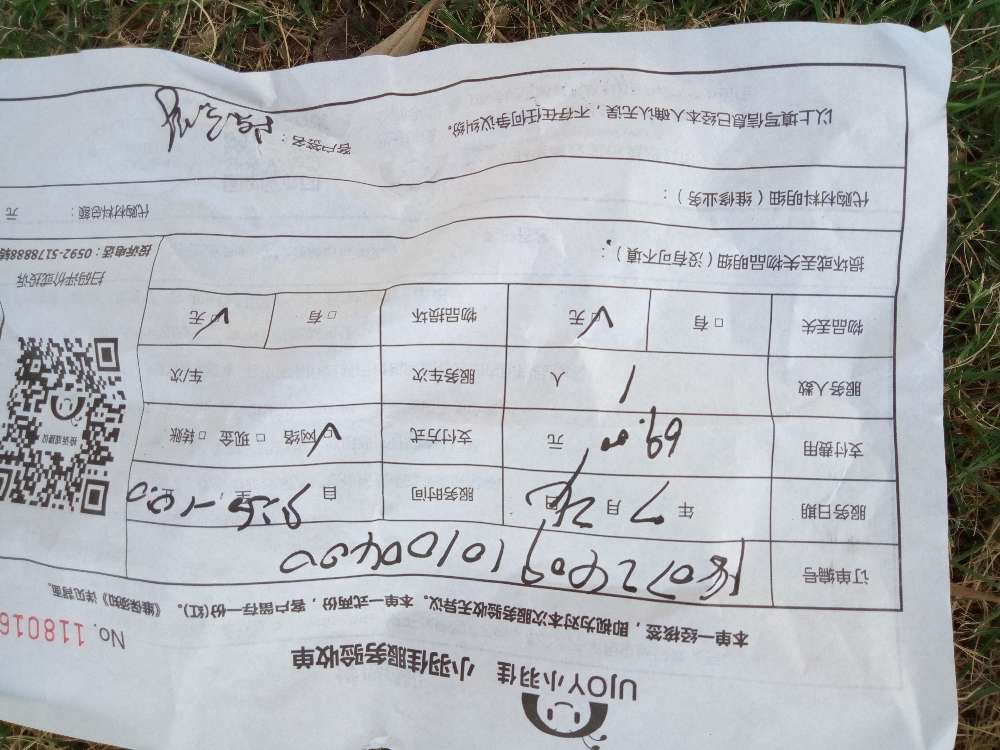 UJOY小羽佳 小羽佳服务验收单
本单一经核签，即视为对本次服务验收无异议。本单一式两份，客户留存一份(红)。《维保须知》详见背面。
No. 118016
订单编号
服务日期 年 7 月 26 日 服务时间 自 至
支付费用 69.00 元 支付方式 网络 □ 现金 □ 转账
服务人数 1 人 服务车次 车/次
物品丢失 □ 有 □ 无 物品损坏 □ 有 □ 无
损坏或丢失物品明细（没有可不填）：
扫码评价或投诉
投诉电话：0592-5178888转
代购材料明细（维修业务）：
代购材料总额： 元
以上填写信息已经本人确认无误，不存在任何争议纠纷。
客户签名：